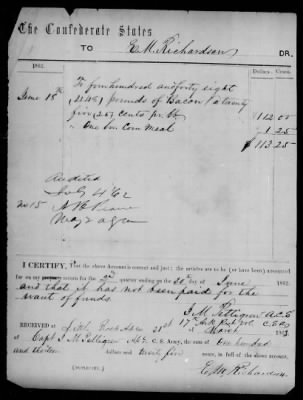 The Confederate States
TO E. M. Richardson DR.
1862. Dollars. Cents.
June 18th To four hundred and forty eight
(448) pounds of Bacon a twenty
five (25) cents pr lb 112 00
" One bu Corn Meal 1 25
$ 113.25
Audited
July 4 62
No 15
I CERTIFY, That the above Accounts is correct and just; the articles are to be (or have been) accounted
for on my property return for the 2nd quarter ending the 30th day of June 1862
and that it has not been paid for the
want of funds.
J. M. Pettigrew A C S
RECEIVED at 21st March 1863
of Capt J. M. Pettigrew A C S. C. S. Army, the sum of One hundred
and thirteen dollars and twenty five cents, in full of the above account.
(DUPLICATE.)
E. M. Richardson